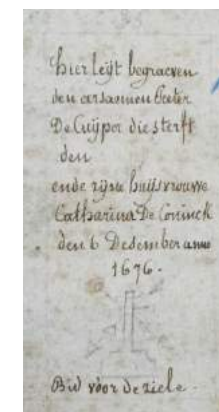 hier leÿt begraeven
den eersamen Peeter
De Cuÿper die sterft
den
ende zijne huijsvrouwe
Catharina De Coninck
den 6 Desember anno
1676.
Bid voor de ziele.